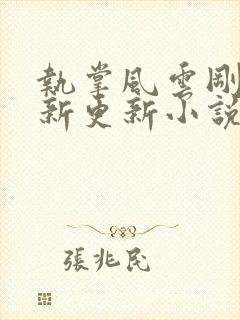 執掌風雲剛
新更新小說
張兆民